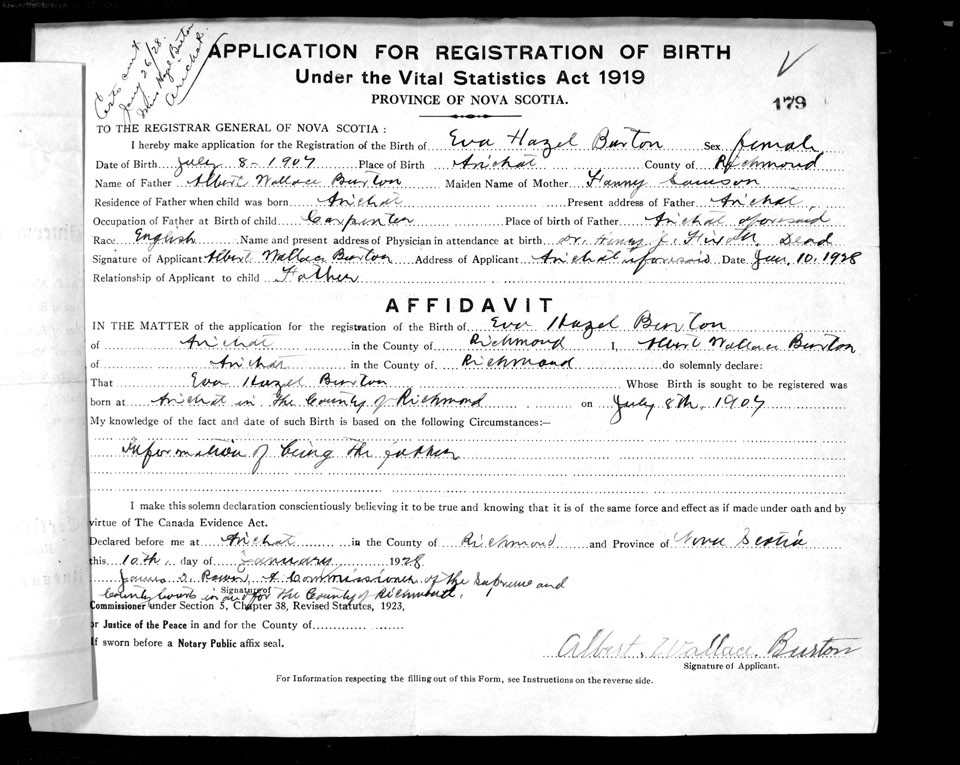 Certs sent
Jany 26/28.
Miss Hazel Burton
Arichat.
APPLICATION FOR REGISTRATION OF BIRTH
Under the Vital Statistics Act 1919
PROVINCE OF NOVA SCOTIA.
179
TO THE REGISTRAR GENERAL OF NOVA SCOTIA:
I hereby make application for the Registration of the Birth of Eva Hazel Burton Sex female
Date of Birth July 8-1907 Place of Birth Arichat County of Richmond
Name of Father Albert Wallace Burton Maiden Name of Mother Fanny Samson
Residence of Father when child was born Arichat Present address of Father Arichat.
Occupation of Father at Birth of child Carpenter Place of birth of Father Arichat aforesaid
Race English Name and present address of Physician in attendance at birth Dr. Henry Dead
Signature of Applicant Albert Wallace Burton Address of Applicant Arichat aforesaid Date Jan. 10. 1928
Relationship of Applicant to child Father
AFFIDAVIT
IN THE MATTER of the application for the registration of the Birth of Eva Hazel Burton
of Arichat in the County of Richmond I, Albert Wallace Burton
of Arichat in the County of Richmond do solemnly declare:
That Eva Hazel Burton Whose Birth is sought to be registered was
born at Arichat in the County of Richmond on July 8th, 1907
My knowledge of the fact and date of such Birth is based on the following Circumstances:—
Information of being the father
I make this solemn declaration conscientiously believing it to be true and knowing that it is of the same force and effect as if made under oath and by
virtue of The Canada Evidence Act.
Declared before me at Arichat in the County of Richmond and Province of Nova Scotia
this 10th. day of January 1928
James A Commissioner of the Supreme and
County Courts in and for the County of Richmond.
Signature of
Commissioner under Section 5, Chapter 38, Revised Statutes, 1923,
or Justice of the Peace in and for the County of
If sworn before a Notary Public affix seal.
Albert Wallace Burton
Signature of Applicant.
For Information respecting the filling out of this Form, see Instructions on the reverse side.